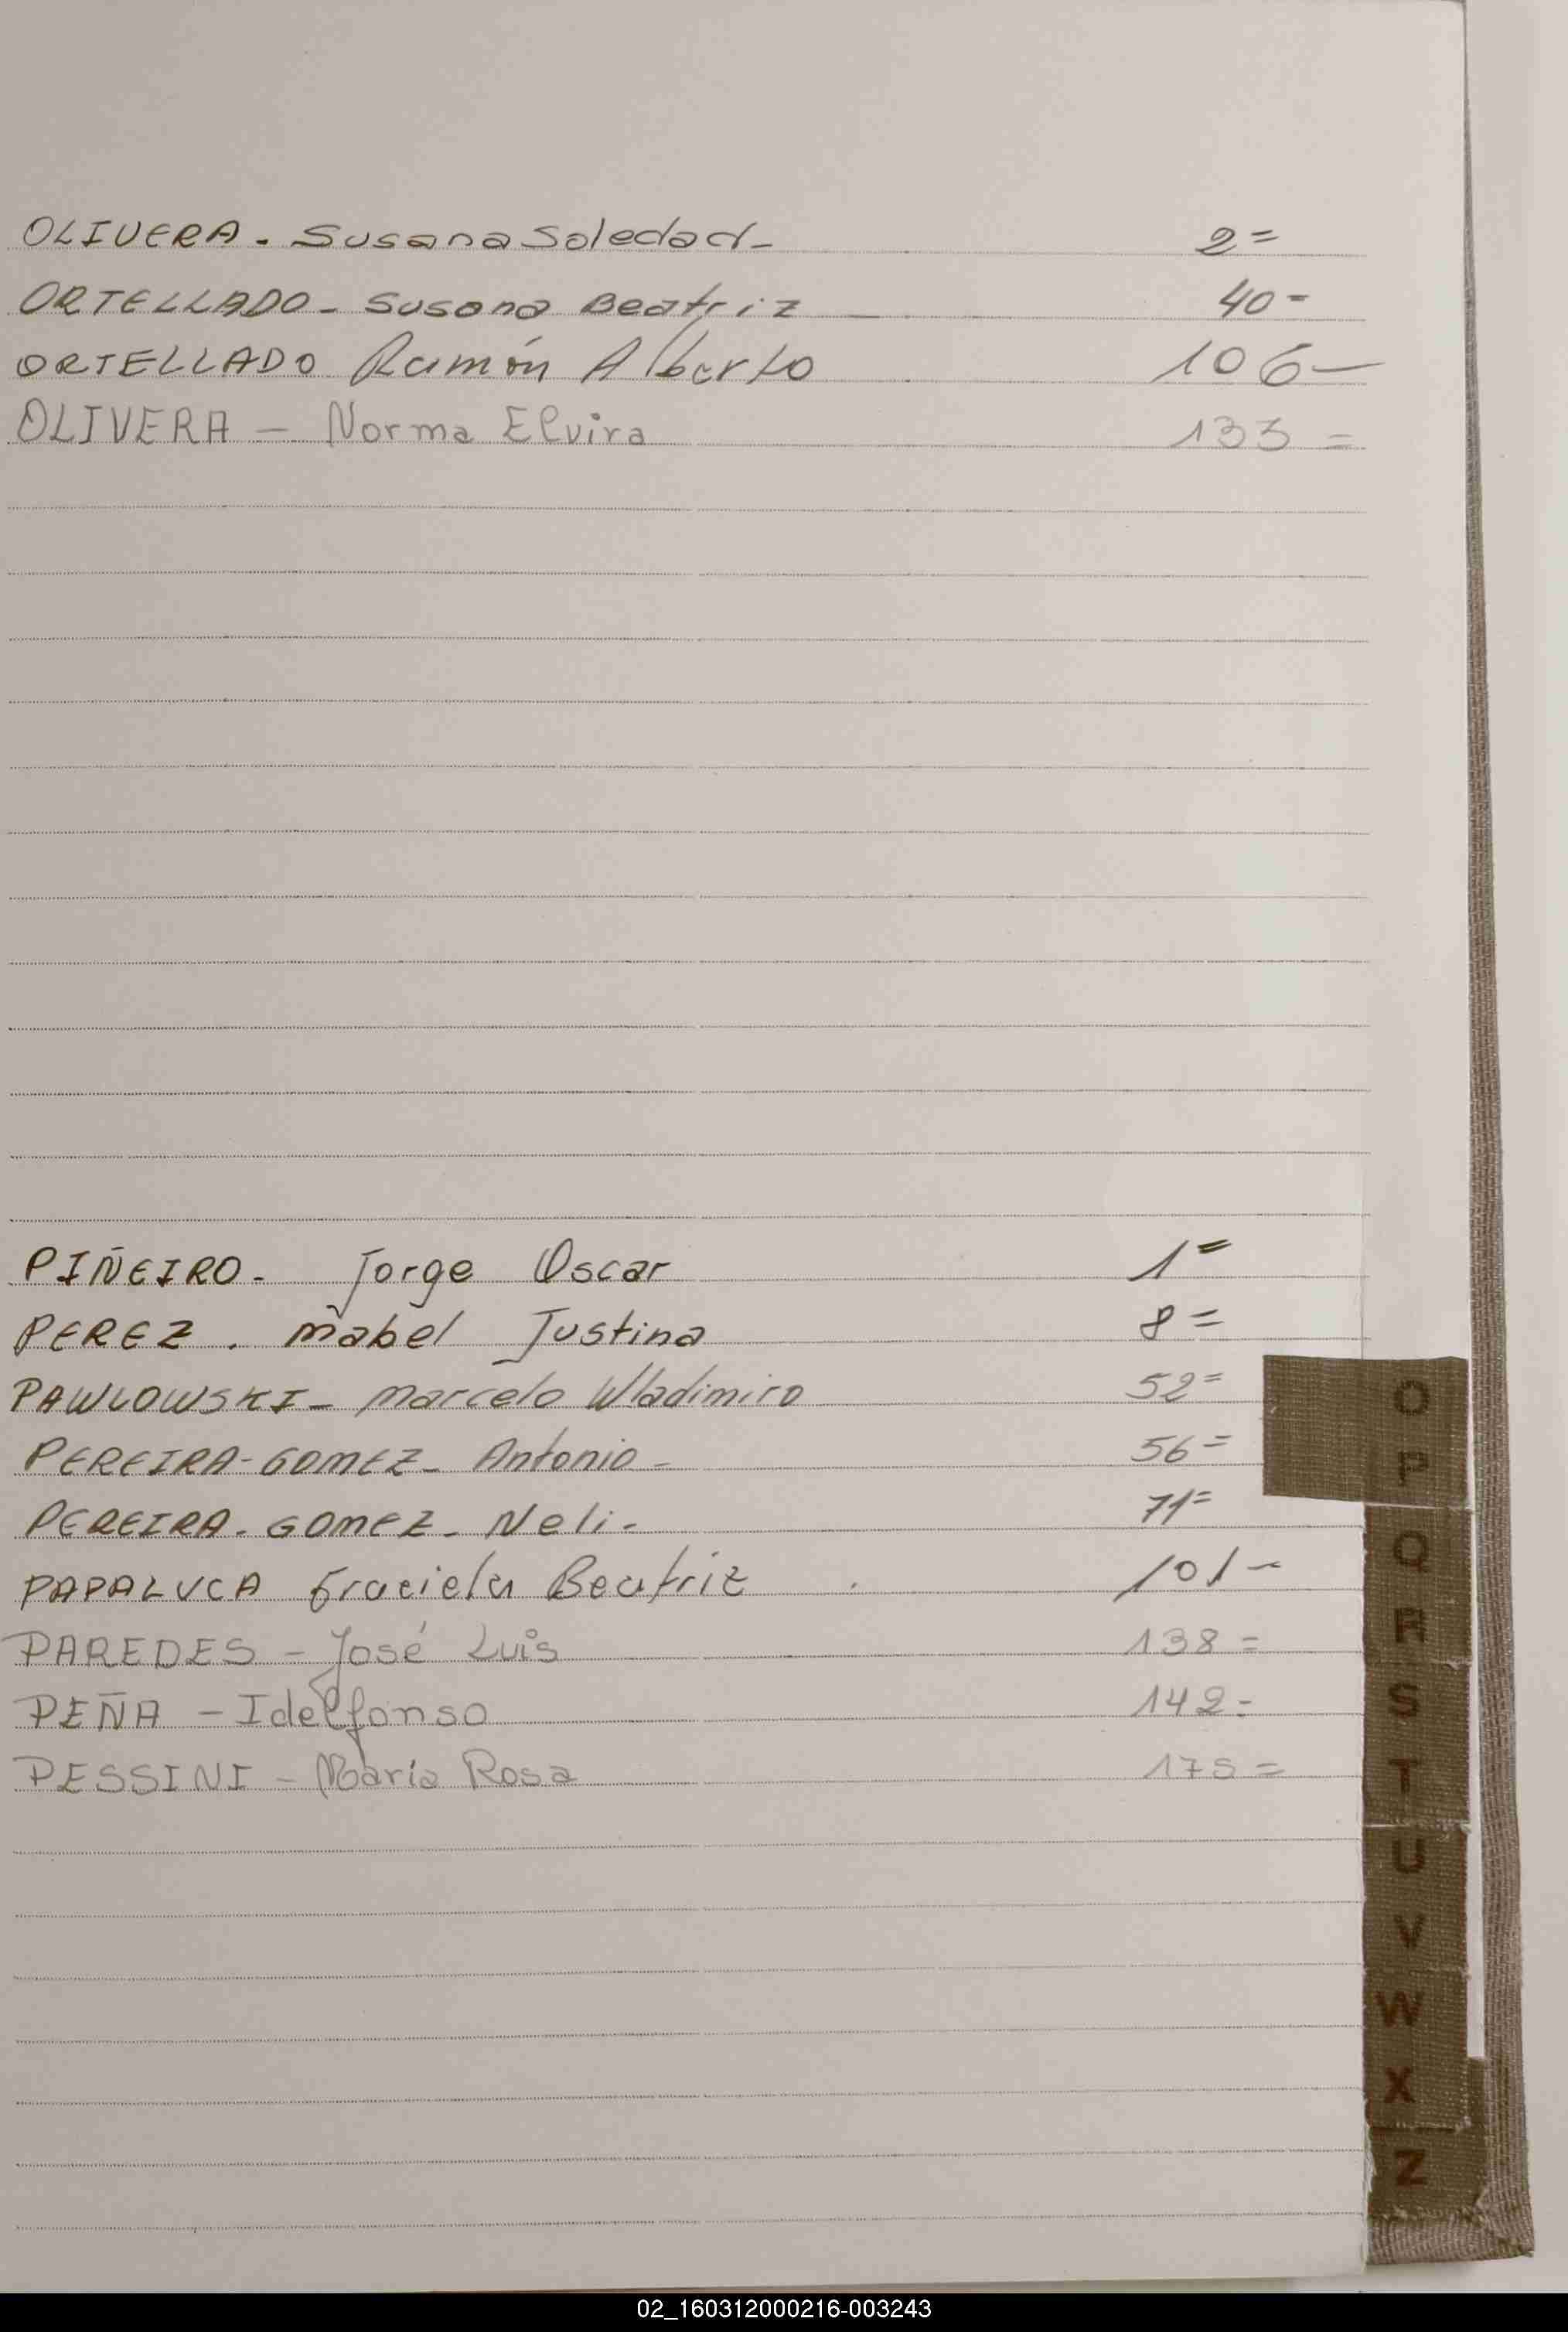 OLIVERA - Susana Soledad - 2=
ORTELLADO - Susana Beatriz - 40-
ORTELLADO Ramón Alberto 106-
OLIVERA - Norma Elvira 133=
PIÑEIRO - Jorge Oscar 1=
PEREZ . Mabel Justina 8=
PAWLOWSKI - Marcelo Wladimiro 52=
PEREIRA-GOMEZ - Antonio - 56=
PEREIRA-GOMEZ - Neli - 71=
PAPALUCA Graciela Beatriz 101-
PAREDES - José Luis 138=
PEÑA - Idelfonso 142=
PESSINI - María Rosa 175=
O
P
Q
R
S
T
U
V
W
X
Z
02_160312000216-003243